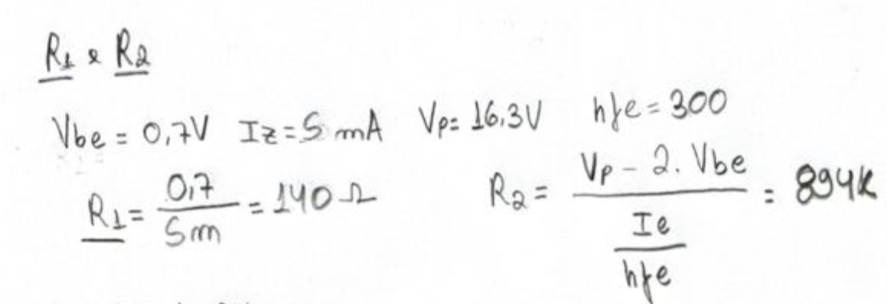 R1 e R2
Vbe = 0,7V Iz = 5 mA Vp = 16,3V hfe = 300
R1 = 0,7 / 5m = 140 Ω R2 = Vp - 2. Vbe / Ie / hfe = 894k